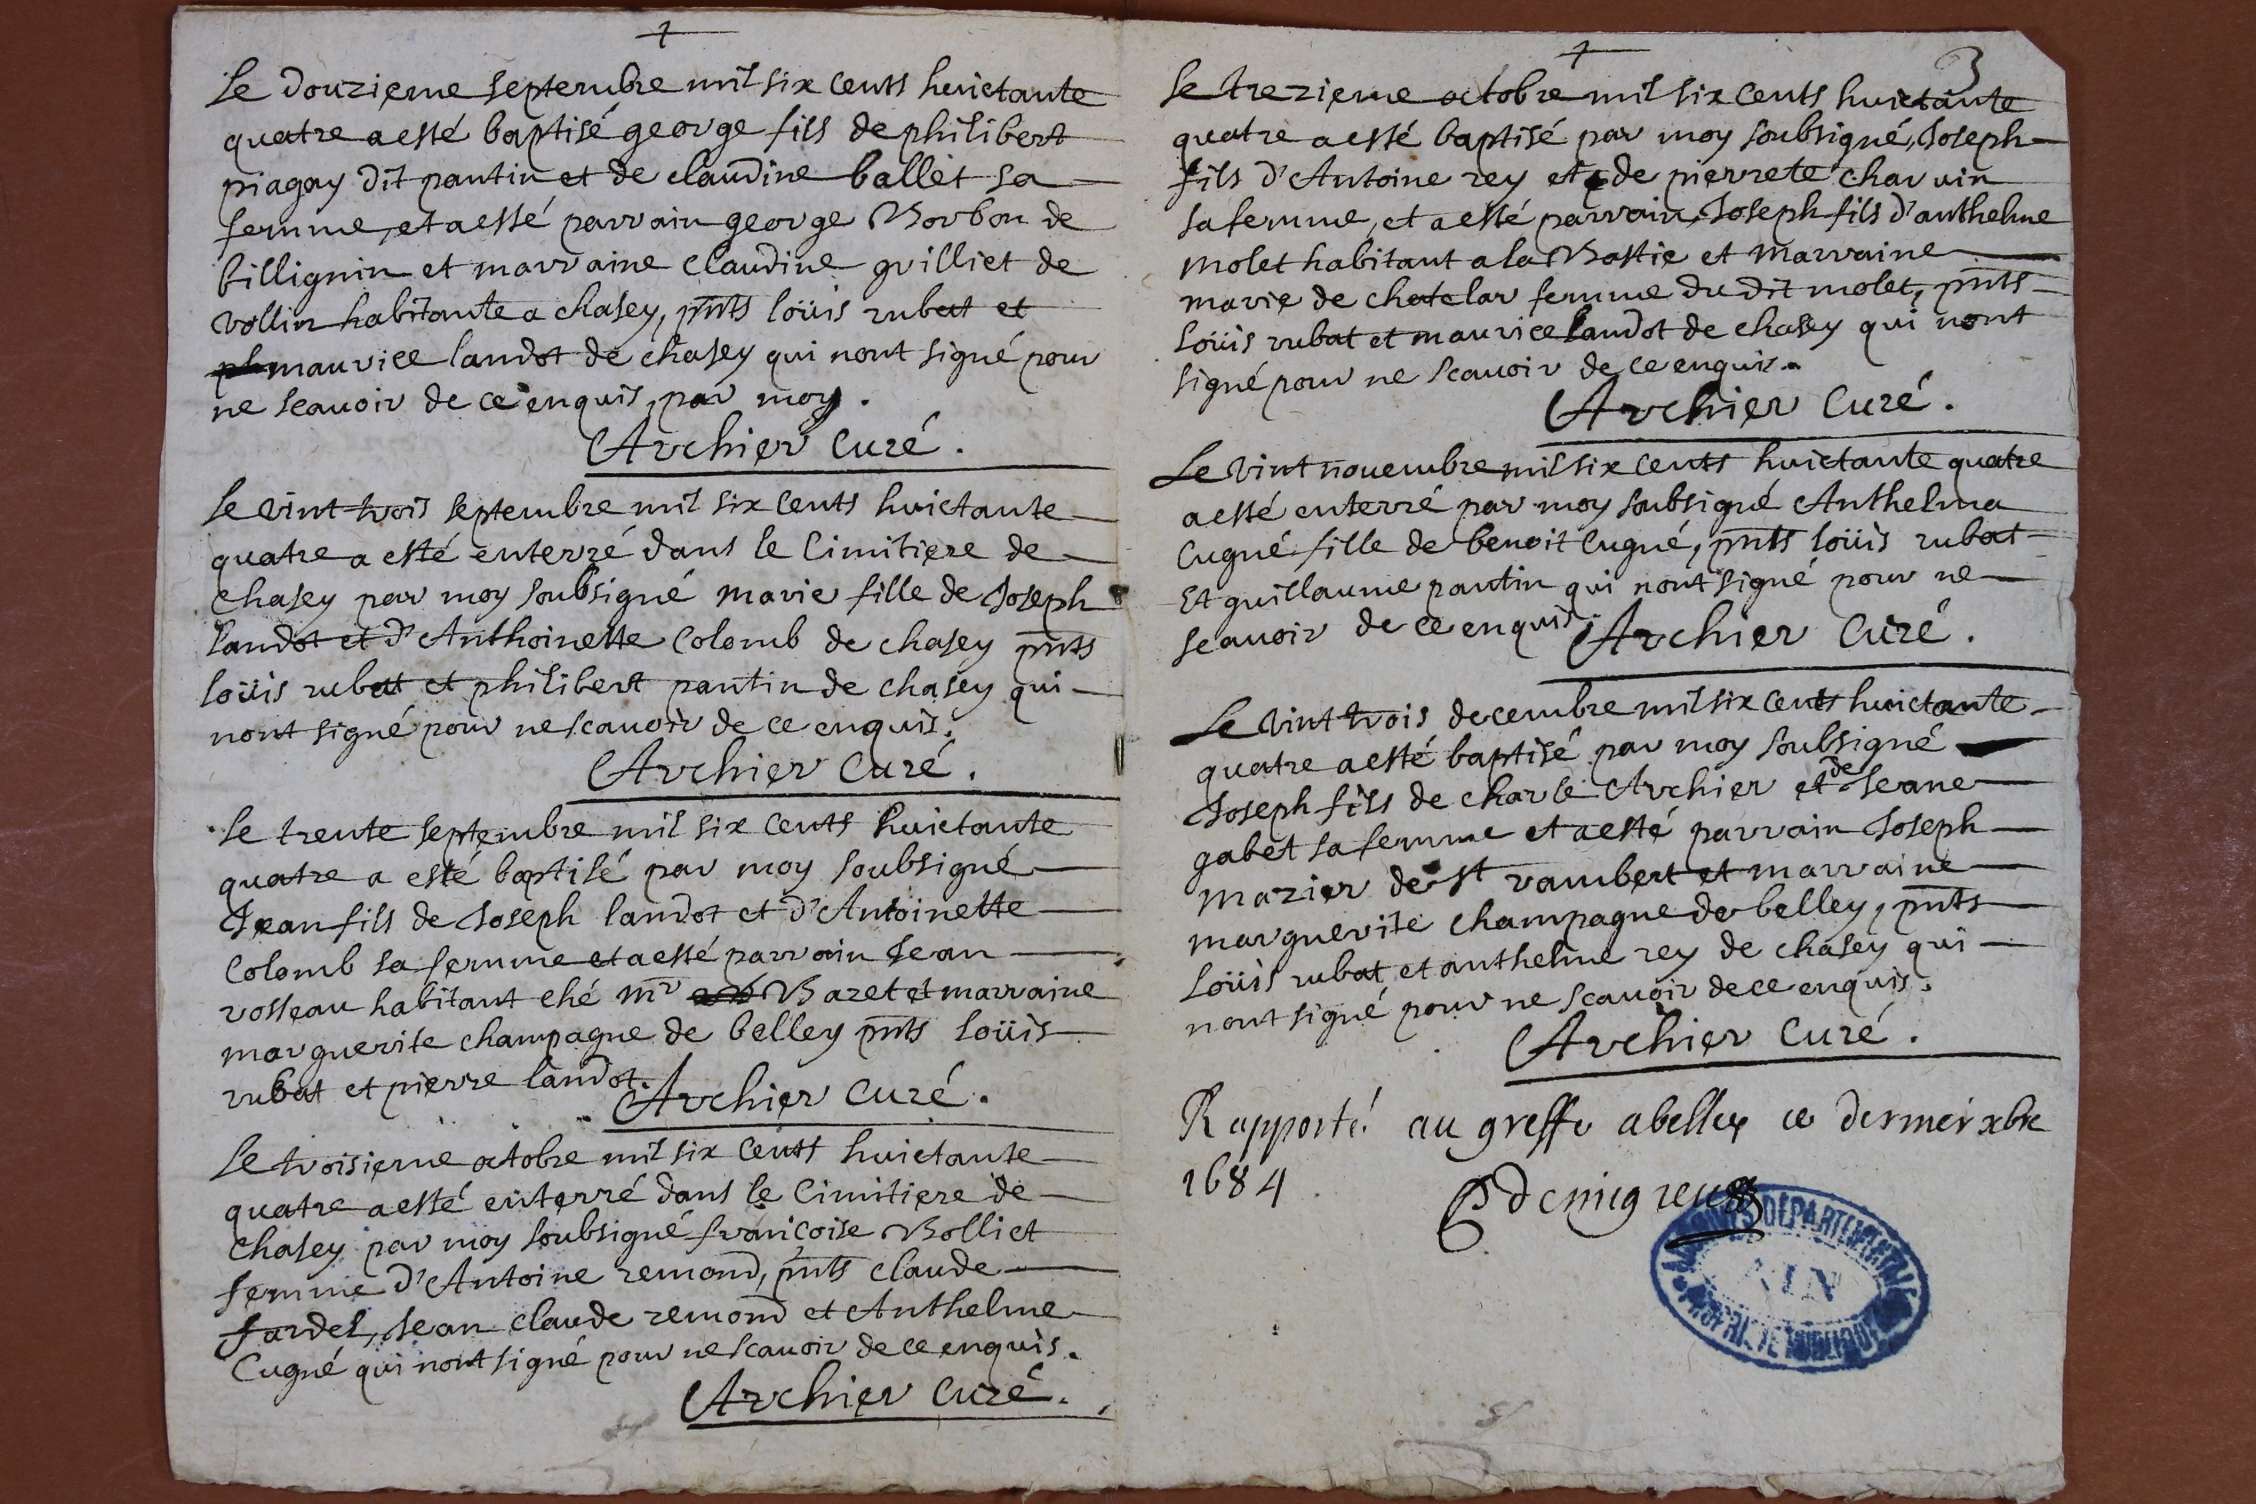 Le douzieme septembre mil six cents huictante
quatre a esté baptisé george fils de philibert
piagay dit pantin et de claudine ballet sa
femme, et a esté parrain george Borbon de
billignin et marraine claudine grilliet de
vollin habitante a chasey, pnts loüis rubat et
maurice landot de chasey qui nont signé pour
ne scavoir de ce enquis, par moy.
Archier curé.
Le vint trois septembre mil six cents huictante
quatre a esté enterré dans le cimitiere de
chasey par moy soubsigné marie fille de Joseph
landot et d'Anthoinette colomb de chasey pnts
loüis rubat et philibert pantin de chasey qui
nont signé pour ne scavoir de ce enquis.
Archier curé.
Le trente septembre mil six cents huictante
quatre a esté baptisé par moy soubsigné
Jean fils de Joseph landot et d'Antoinette
colomb sa femme et a esté parrain Jean
rosseau habitant ché mr Bazet et marraine
marguerite champagne de belley pnts loüis
rubat et pierre landot.
Archier curé.
Le troisieme octobre mil six cents huictante
quatre a esté enterré dans le cimitiere de
chasey par moy soubsigné francoise Bolliet
femme d'Antoine remond, pnts claude
fardel, Jean claude remond et Anthelme
Cugné qui nont signé pour ne scavoir de ce enquis.
Archier curé.
3
Le trezieme octobre mil six cents huictante
quatre a esté baptisé par moy soubsigné, Joseph
fils d'Antoine rey et de pierrete charvin
sa femme, et a esté parrain, Joseph fils d'anthelme
molet habitant a la Bastie et marraine
marie de chatelar femme du dit molet, pnts
loüis rubat et maurice landot de chasey qui nont
signé pour ne scavoir de ce enquis.
Archier curé.
Le vint novembre mil six cents huictante quatre
a esté enterré par moy soubsigné Anthelma
Cugné fille de benoit Cugné, pnts loüis rubat
Et guillaume pantin qui nont signé pour ne
scavoir de ce enquis.
Archier curé.
Le vint trois decembre mil six cents huictante
quatre a esté baptisé par moy soubsigné
Joseph fils de charle Archier et de Jeane
gabet sa femme et a esté parrain Joseph
mazier de st rambert et marraine
marguerite champagne de belley, pnts
loüis rubat et anthelme rey de chasey qui
nont signé pour ne scavoir de ce enquis.
Archier curé.
Rapporté au greffe a belley ce dernier xbre
1684
ARCHIVES DÉPARTEMENTALES
AIN
PROPRIÉTÉ PUBLIQUE